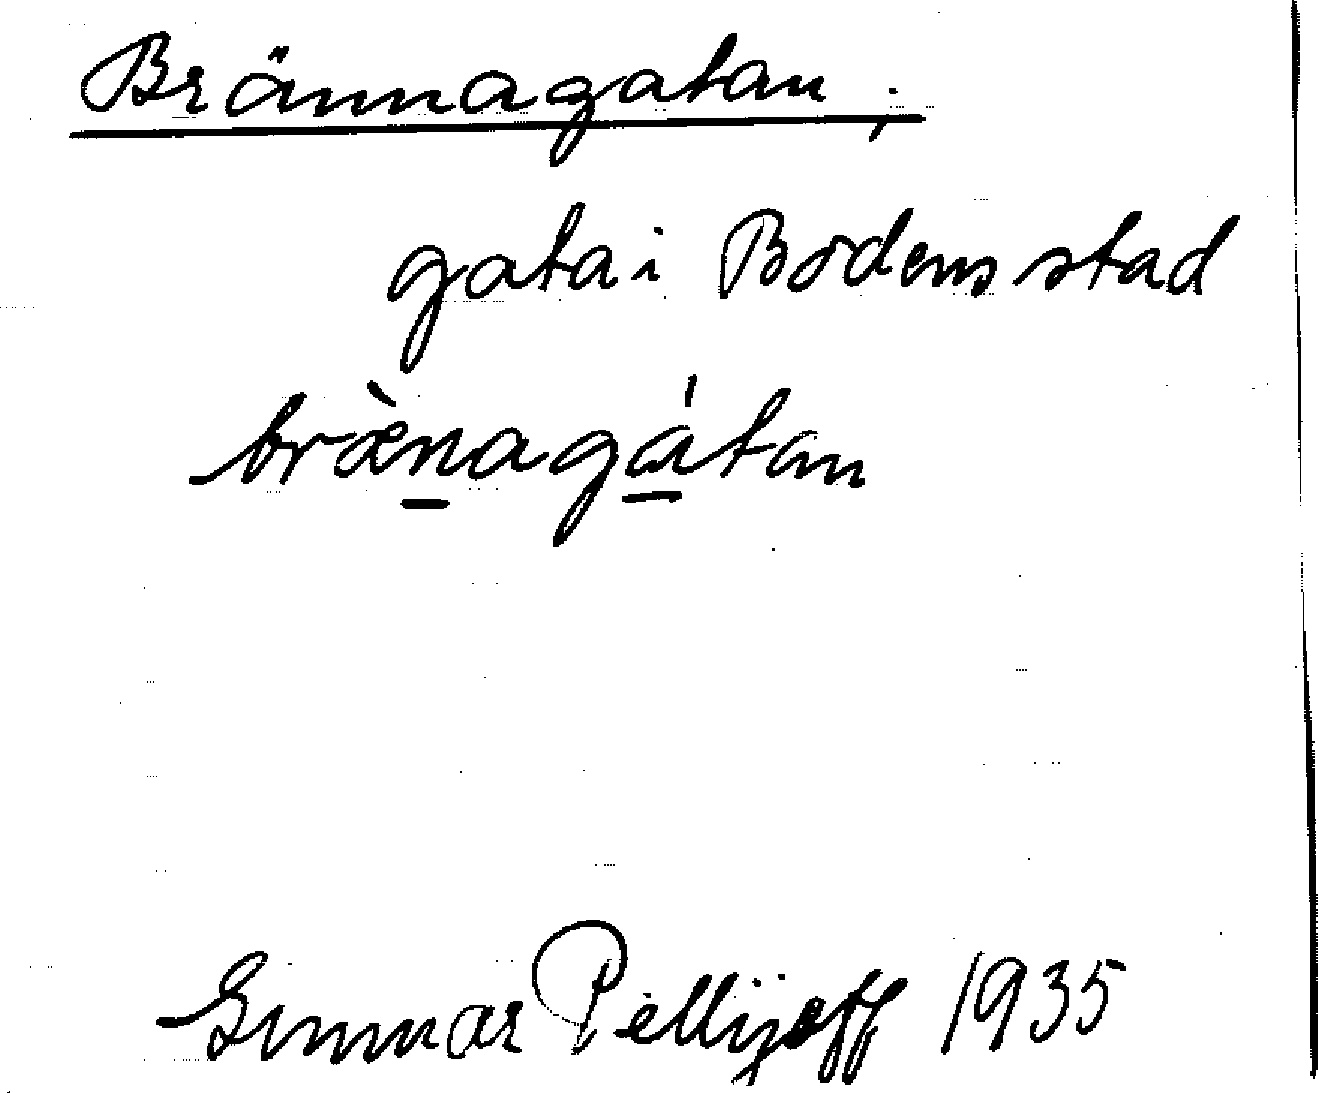 Brännagatan;
gata i Bodens stad
bræ̀nagátan
Gunnar Pellijeff 1935